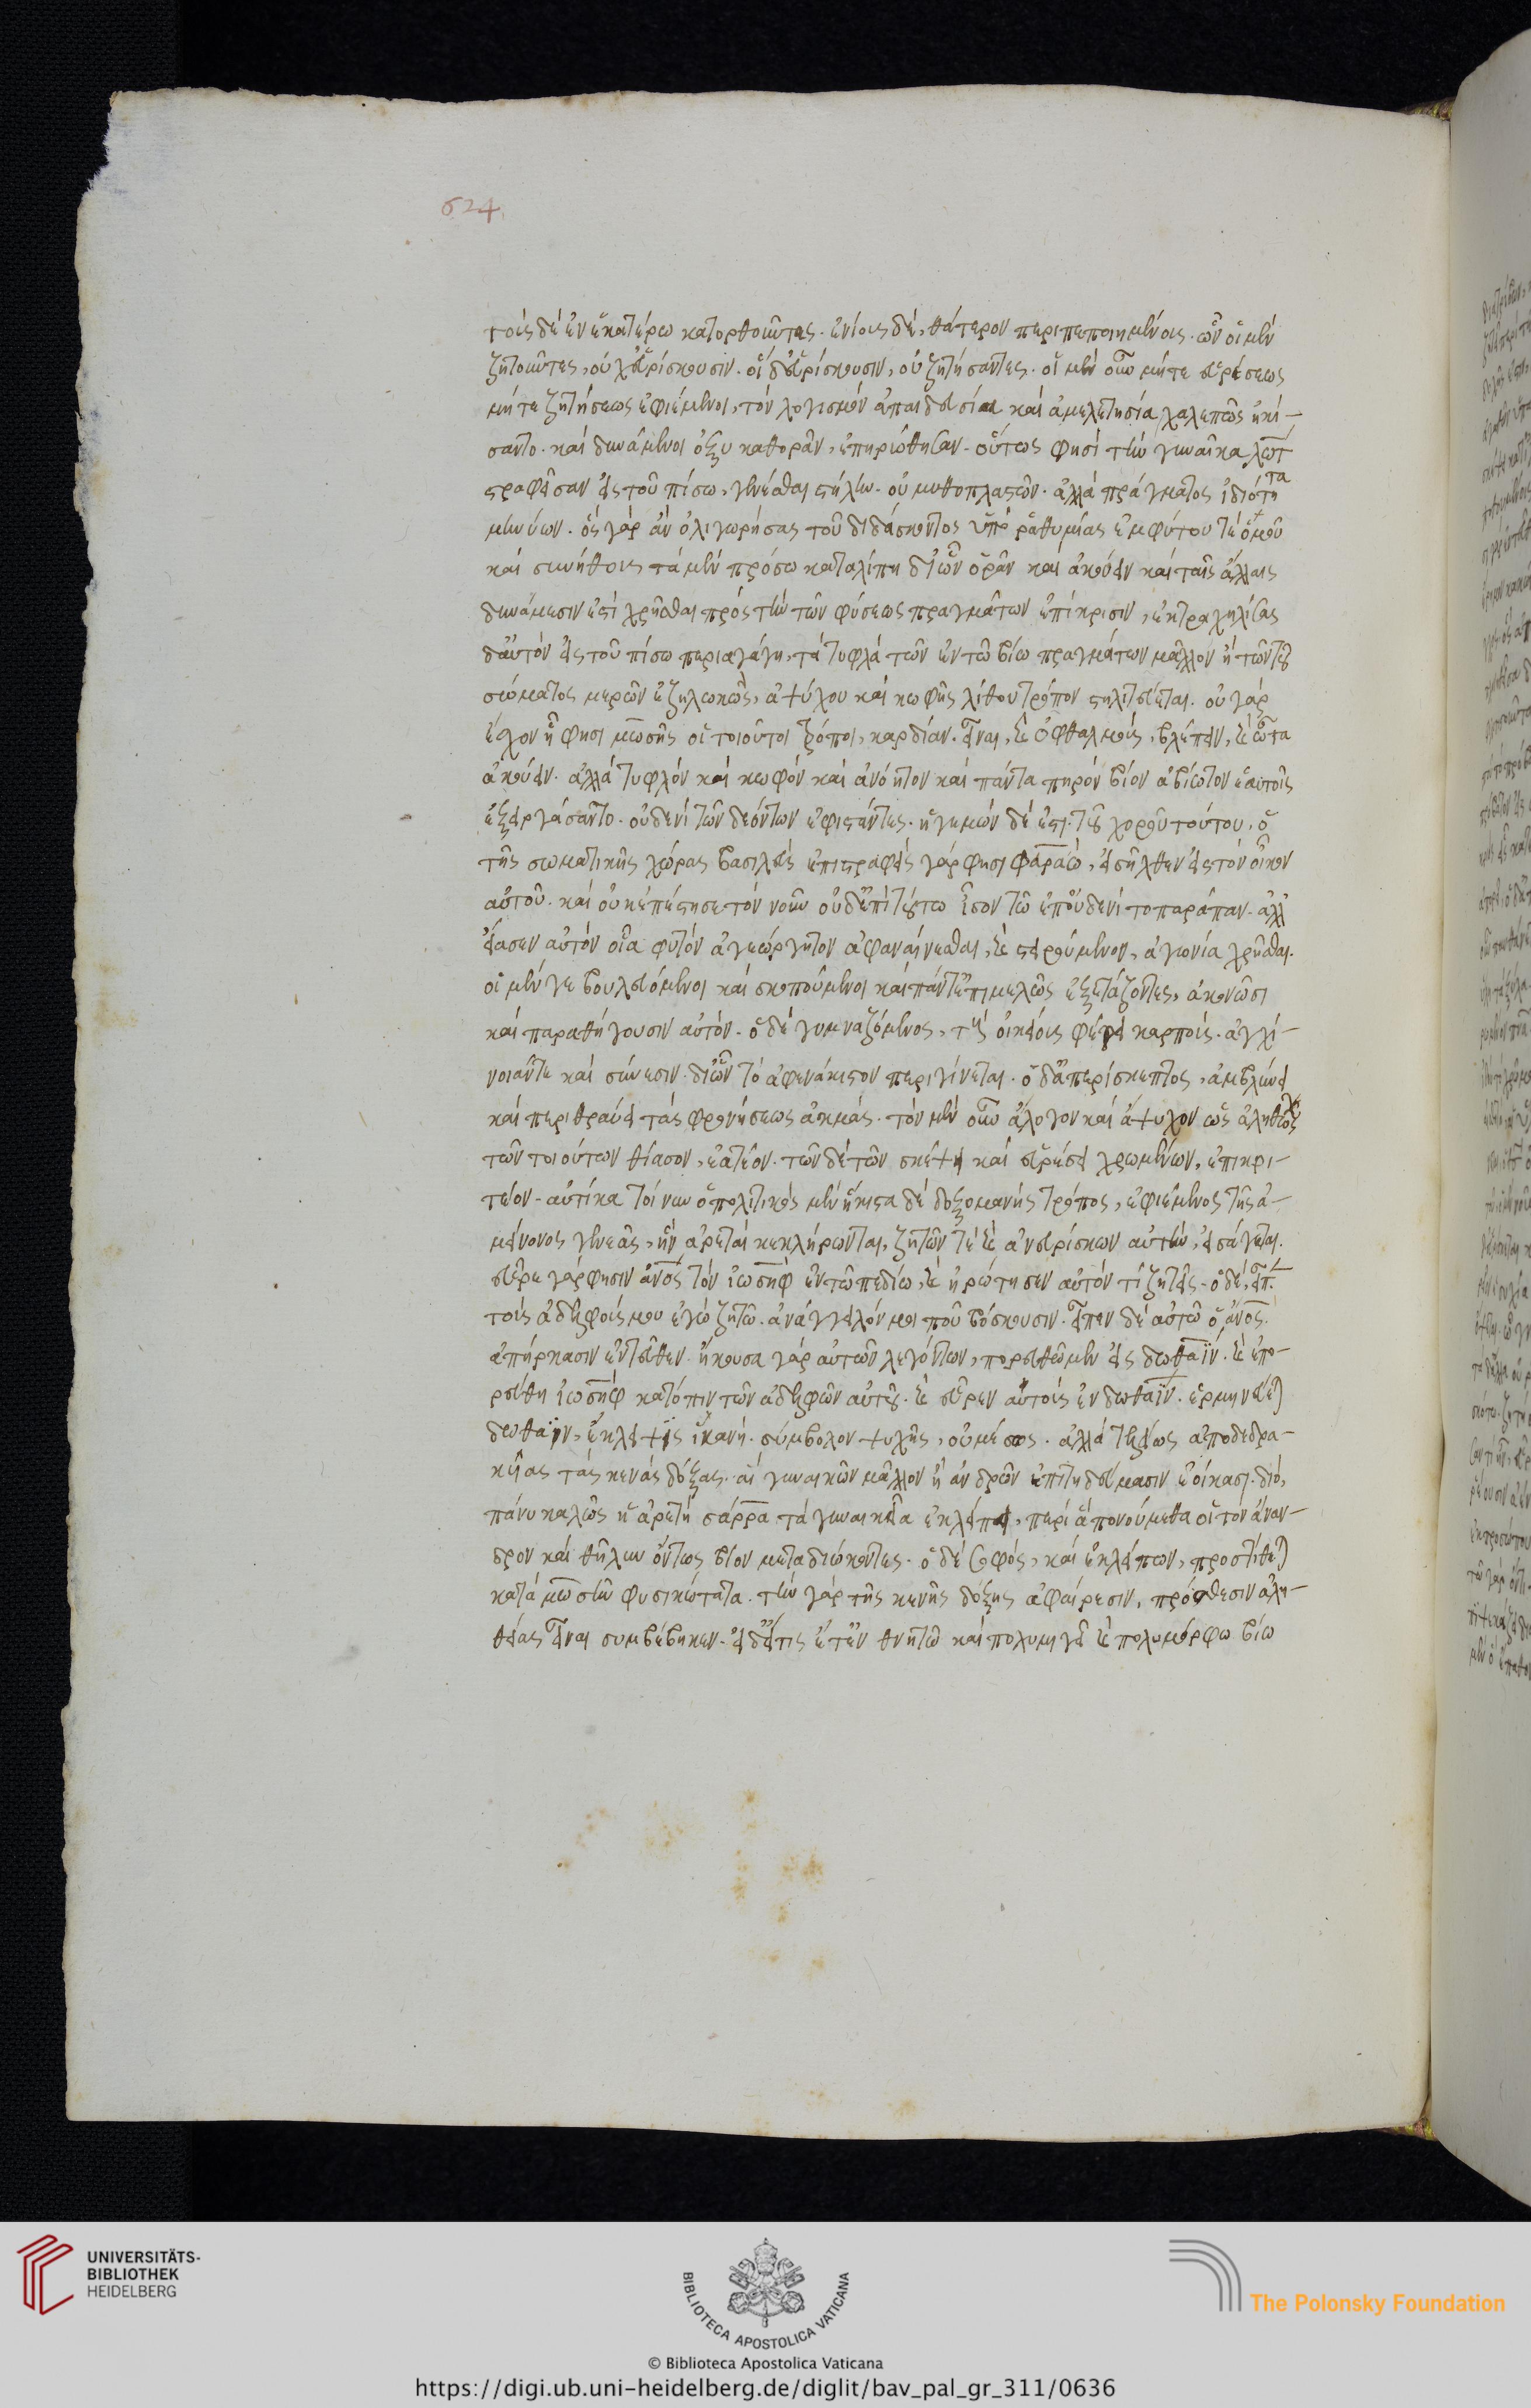 624
τοὺς δὲ ἐν ἑκατέρω κατορθοῦντας. ἐνίους δὲ, θάτερον περιπεποιημένους. ὧν οἱ μὲν
ζητοῦντες, οὐχ εὑρίσκουσιν. οἱ δ' εὑρίσκουσιν, οὐ ζητήσαντες. οἱ μὲν οὖν μήτε εὑρέσεως
μήτε ζητήσεως ἐφιέμενοι, τὸν λογισμὸν ἀπαιδευσία καὶ ἀμελετησία χαλεπῶς ἠκί-
σαντο. καὶ δυνάμενοι ὀξὺ καθορᾶν, ἐπηρώθησαν. οὕτως φησὶ τὴν γυναῖκα λὼτ
στραφεῖσαν εἰς τοὐπίσω, γενέσθαι στήλην. οὐ μυθοπλαστῶν. ἀλλὰ πράγματος ἰδιότητα
μηνύων. ὃς γὰρ ἂν ὀλιγωρήσας τοῦ διδάσκοντος ὑπὸ ῥαθυμίας ἐμφύτου τὲ ὁμοῦ
καὶ συνήθους τὰ μὲν πρόσω καταλίπη δι' ὧν ὁρᾶν καὶ ἀκούειν καὶ ταῖς ἄλλαις
δυνάμεσιν ἐστὶ χρῆσθαι πρὸς τὴν τῶν φύσεως πραγμάτων ἐπίκρισιν, ἐκτραχηλίσας
δ' αὑτὸν εἰς τοὐπίσω περιαγάγη, τὰ τυφλὰ τῶν ἐν τῶ βίω πραγμάτων μᾶλλον ἢ τῶν τοῦ
σώματος μερῶν ἐζηλωκὼς, ἀψύχου καὶ κωφῆς λίθου τρόπον στηλιτεύεται. οὐ γὰρ
ἔσχον ἧ φησι μωσῆς οἱ τοιοῦτοι τρόποι, καρδίαν εἶναι, καὶ ὀφθαλμοὺς, βλέπειν, καὶ ὦτα
ἀκούειν. ἀλλὰ τυφλὸν καὶ κωφὸν καὶ ἀνόητον καὶ πάντα πηρὸν βίον ἀβίωτον ἑαυτοῖς
ἐξειργάσαντο. οὐδενὶ τῶν δεόντων ἐφιστάντες. ἡγεμὼν δέ ἐστι τοῦ χοροῦ τούτου, ὁ
τῆς σωματικῆς χώρας βασιλεὺς ἐπιστραφεὶς γάρ φησι φαραὼ, εἰσῆλθεν εἰς τὸν οἶκον
αὐτοῦ. καὶ οὐκ ἐπέστησε τὸν νοῦν οὐδ' ἐπὶ τούτω ἴσον τῶ ἐπ' οὐδενὶ τοπαράπαν. ἀλλ'
εἴασεν αὐτὸν οἷα φυτὸν ἀγεώργητον ἀφαναίνεσθαι, καὶ στειρούμενον, ἀγονία χρῆσθαι.
οἱ μέν γε βουλευόμενοι καὶ σκοπούμενοι καὶ πάντ' ἐπιμελῶς ἐξετάζοντες, ἀκονῶσι
καὶ παραθήγουσιν αὐτόν. ὁ δὲ γυμναζόμενος, τοὺς οἰκείους φέρει καρποὺς. ἀγχί-
νοιάντε καὶ σύνεσιν. δι' ὧν τὸ ἀφενάκιστον περιγίνεται. ὁ δ' ἀπερίσκεπτος, ἀμβλύνει
καὶ περιθραύει τὰς φρονήσεως ἀκμάς. τὸν μὲν οὖν ἄλογον καὶ ἄψυχον ὡς ἀληθῶς
τῶν τοιούτων θίασον, ἐατέον. τῶν δὲ τῶν σκέψει καὶ εὑρέσει χρωμένων, ἐπικρι-
τέον. αὐτίκα τοίνυν ὁ πολιτικὸς μὲν ἥκιστα δὲ δοξομανὴς τρόπος, ἐφιέμενος τῆς ἀ-
μείνονος γενεᾶς, ἣν ἀρεταὶ κεκλήρωνται, ζητῶν τὲ καὶ ἀνευρίσκων αὐτὴν, εἰσάγεται.
εὗρε γάρ φησιν ἄνος τὸν ἰωσὴφ ἐν τῶ πεδίω, καὶ ἠρώτησεν αὐτὸν τί ζητεῖς. ὁ δὲ, εἶπε.
τοὺς ἀδελφούς μου ἐγὼ ζητῶ. ἀνάγγειλόν μοι ποῦ βόσκουσιν. εἶπεν δὲ αὐτῶ ὁ ἄνος.
ἀπήρκασιν ἐντεῦθεν. ἤκουσα γὰρ αὐτῶν λεγόντων, πορευθῶμεν εἰς δωθαΐν. καὶ ἐπο-
ρεύθη ἰωσὴφ κατόπιν τῶν ἀδελφῶν αὐτοῦ. καὶ εὗρεν αὐτοὺς ἐν δωθαΐν. ἑρμηνεύεται
δωθαῒν, ἔκλειψις ἱκανὴ. σύμβολον ψυχῆς, οὐ μέσως. ἀλλὰ τελείως ἀποδεδρα-
κυίας τὰς κενὰς δόξας. αἳ γυναικῶν μᾶλλον ἢ ἀνδρῶν ἐπιτηδεύμασιν ἐοίκασι. διὸ,
πάνυ καλῶς ἡ ἀρετὴ σάρρα τὰ γυναικεῖα ἐκλείπει, περὶ ἃ πονούμεθα οἱ τὸν ἄναν-
δρον καὶ θῆλυν ὄντως βίον μεταδιώκοντες. ὁ δὲ σοφὸς, καὶ ἐκλείπων, προστίθεται
κατὰ μωσῆν φυσικώτατα. τὴν γὰρ τῆς κενῆς δόξης ἀφαίρεσιν, πρόσθεσιν ἀλη-
θείας εἶναι συμβέβηκεν. εἰ δέ τις ἔτ' ἐν θνητῶ καὶ πολυμιγεῖ καὶ πολυμόρφω βίω
UNIVERSITÄTS-
BIBLIOTHEK
HEIDELBERG
BIBLIOTECA APOSTOLICA VATICANA
The Polonsky Foundation
© Biblioteca Apostolica Vaticana
https://digi.ub.uni-heidelberg.de/diglit/bav_pal_gr_311/0636